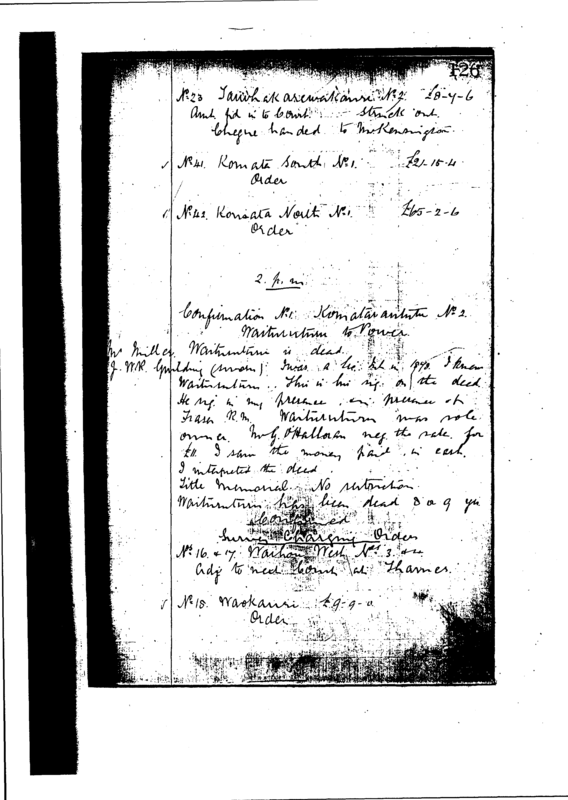 126
No 23 Tawhakarewakauri No 2. £8-4-6
Amt pd in to Court Struck out
Cheque handed to Mr Kensington
No 41. Komata South No 1. £21-15-4
Order
No 42. Komata North No 1. £65-2-6
Order
2. p.m
Confirmation No 1. No 2.
to Power
Mr Miller is dead.
J. W. R. Guilding (sworn) I was a lic. Int. in I knew
This is his sig. on the deed
He sig. in my presence, in presence of
Fraser R.M. was sole
owner. Mr G. O'Halloran neg. the sale for
I saw the money paid in cash.
I interpreted the deed.
Title Memorial. No restriction
has been dead 8 or 9 yrs
Confirmed
Survey Charging Orders
No 16. & 17. Waihou West No 3.
Adj to next Court at Thames.
No 18. £9-9-0
Order